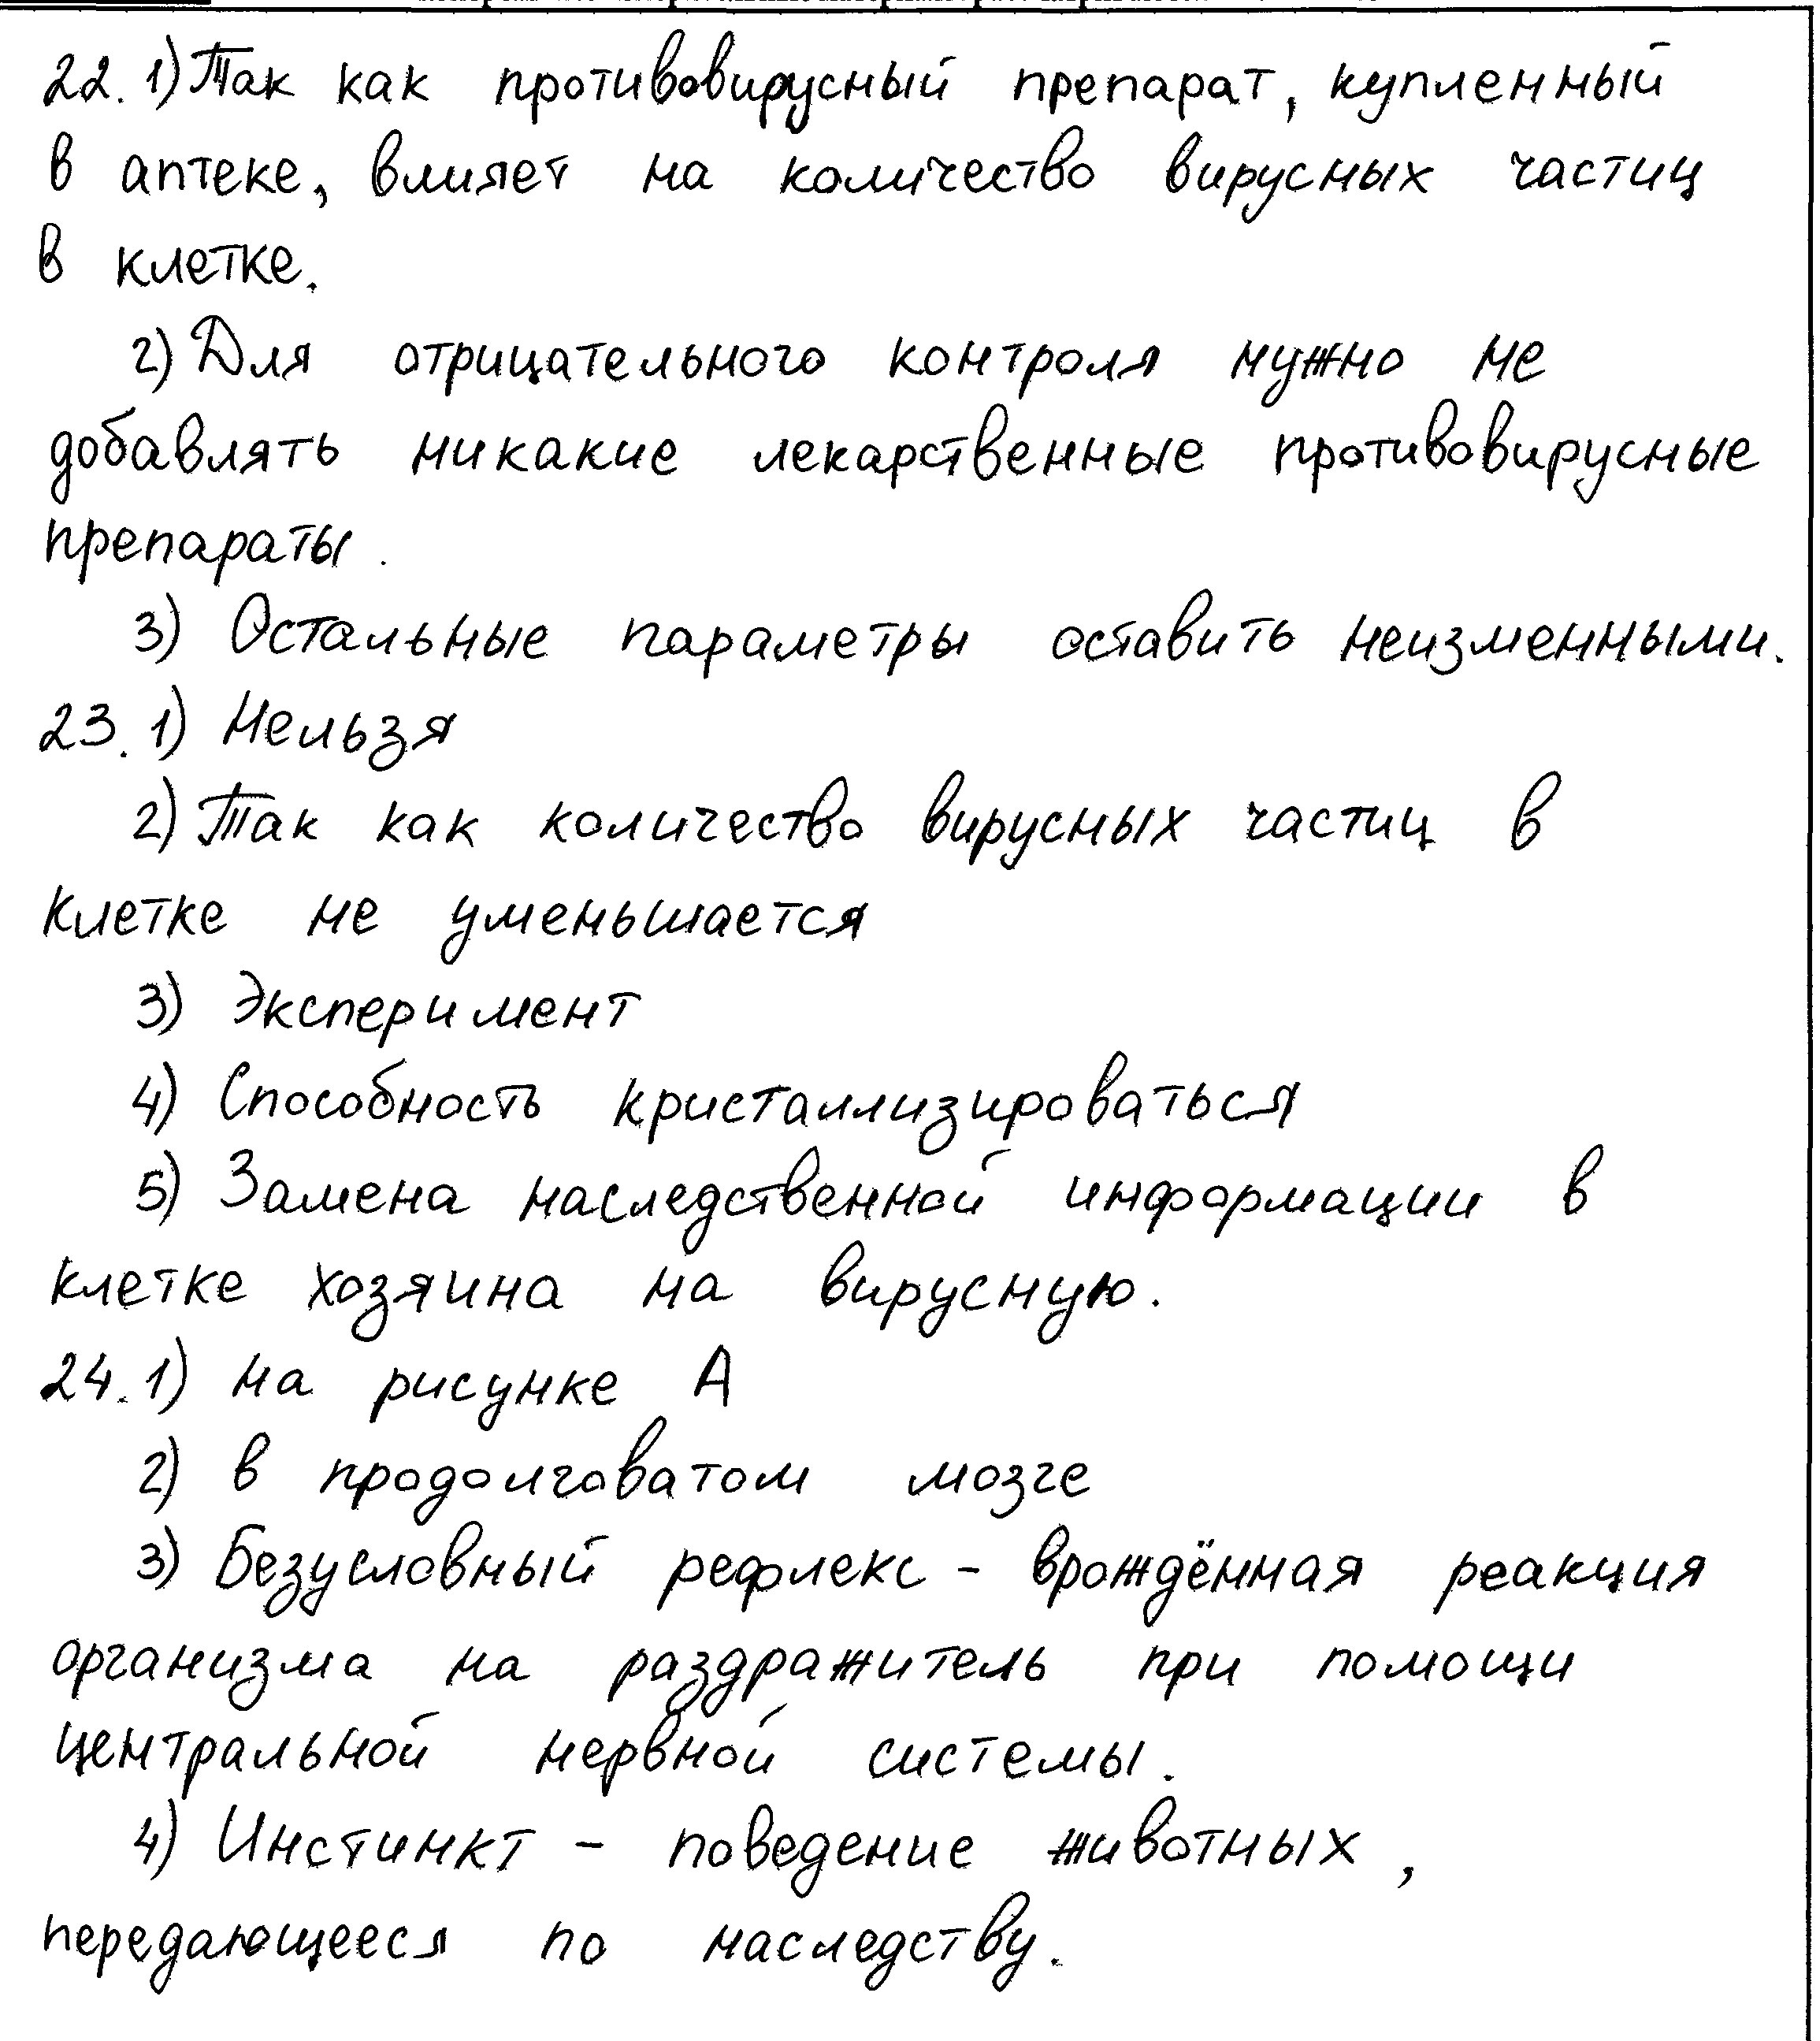 22. 1) Так как противовирусный препарат, купленный
в аптеке, влияет на количество вирусных частиц
в клетке.
2) Для отрицательного контроля нужно не
добавлять никакие лекарственные противовирусные
препараты.
3) Остальные параметры оставить неизменными.
23. 1) Нельзя
2) Так как количество вирусных частиц в
клетке не уменьшается
3) Эксперимент
4) Способность кристаллизироваться
5) Замена наследственной информации в
клетке хозяина на вирусную.
24. 1) на рисунке А
2) в продолговатом мозге
3) Безусловный рефлекс - врождённая реакция
организма на раздражитель при помощи
центральной нервной системы.
4) Инстинкт - поведение животных,
передающееся по наследству.